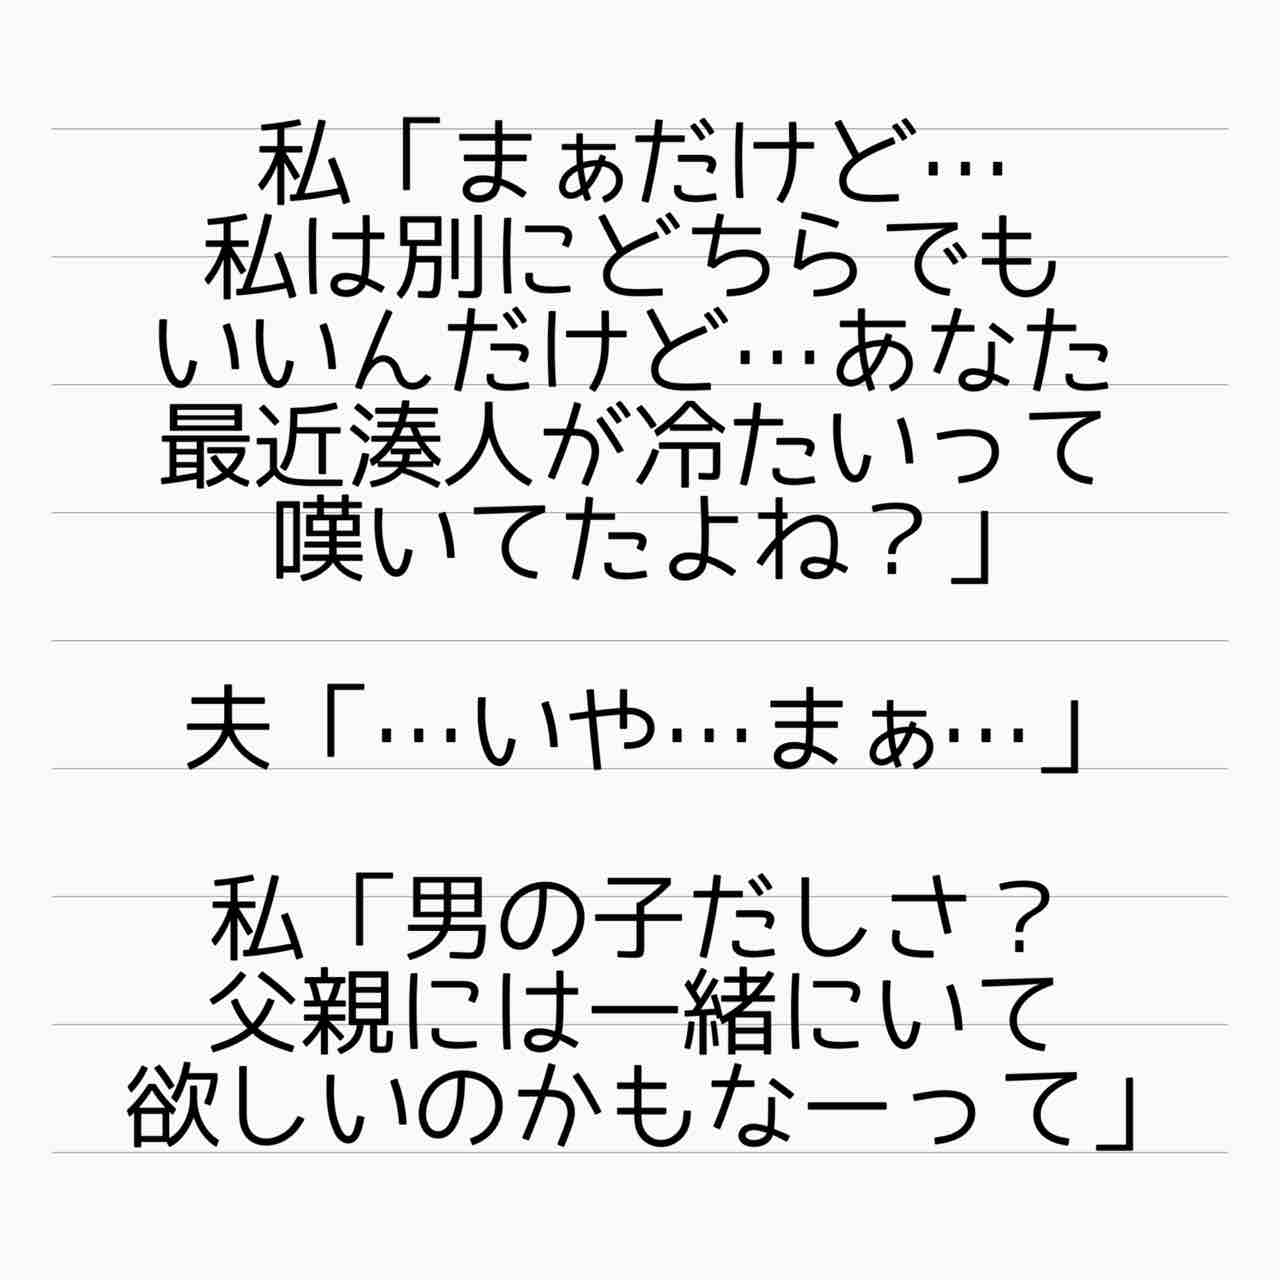 私「まぁだけど…
私は別にどちらでも
いいんだけど…あなた
最近湊人が冷たいって
嘆いてたよね？」
夫「…いや…まぁ…」
私「男の子だしさ？
父親には一緒にいて
欲しいのかもなーって」